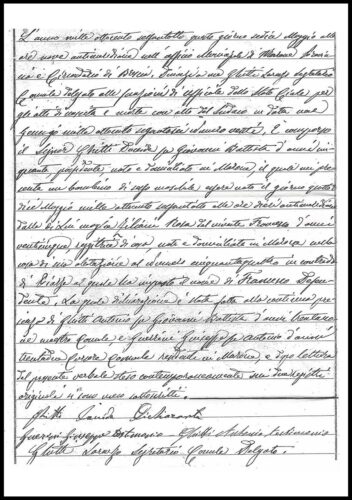 L'anno mille ottocento settantotto questo giorno sedici Maggio alle
ore nove antimeridiane nell'officio Municipale di Marone Provin
cia e Circondario di Brescia, Dinanzi a me Ghitti Lorenzo Segretario
Comunale Delegato alle funzioni di ufficiale dello Stato Civile per
gli atti di nascita e morte con atto del Sindaco in data
Gennajo mille ottocento settantasei E comparso
il Signor Ghitti Davide fu Giovanni Battista d'anni
quaranta possidente, nato e domiciliato in Marone il quale mi pre
senta un bambino di sesso mascolino, espone nato il giorno
dieci Maggio mille ottocento settantotto alle ore dieci antimeridiane
dalla di lui moglie Rosa del vivente Francesco d'anni
ventitinque registrata di casa, nata e domiciliata in Marone nella
casa di sua abitazione al numero cinquantaquattro in contrada
di al quale ha imposto il nome di Francesco
La quale dichiarazione è stata fatta alla continua pre
senza di Ghitti Antonio fu Giovanni Battista d'anni trentanove
Comunale e Guerrini Giuseppe fu Antonio d'anni
trentadue Cursore Comunale residenti in Marone, e dopo lettura
del presente verbale steso contemporaneamente sui due registri
originali si sono meco sottoscritti.
Ghitti Davide Dichiarante
Guerrini Giuseppe testimonio Ghitti Antonio testimonio
Ghitti Lorenzo Segretario Comunale Delegato.